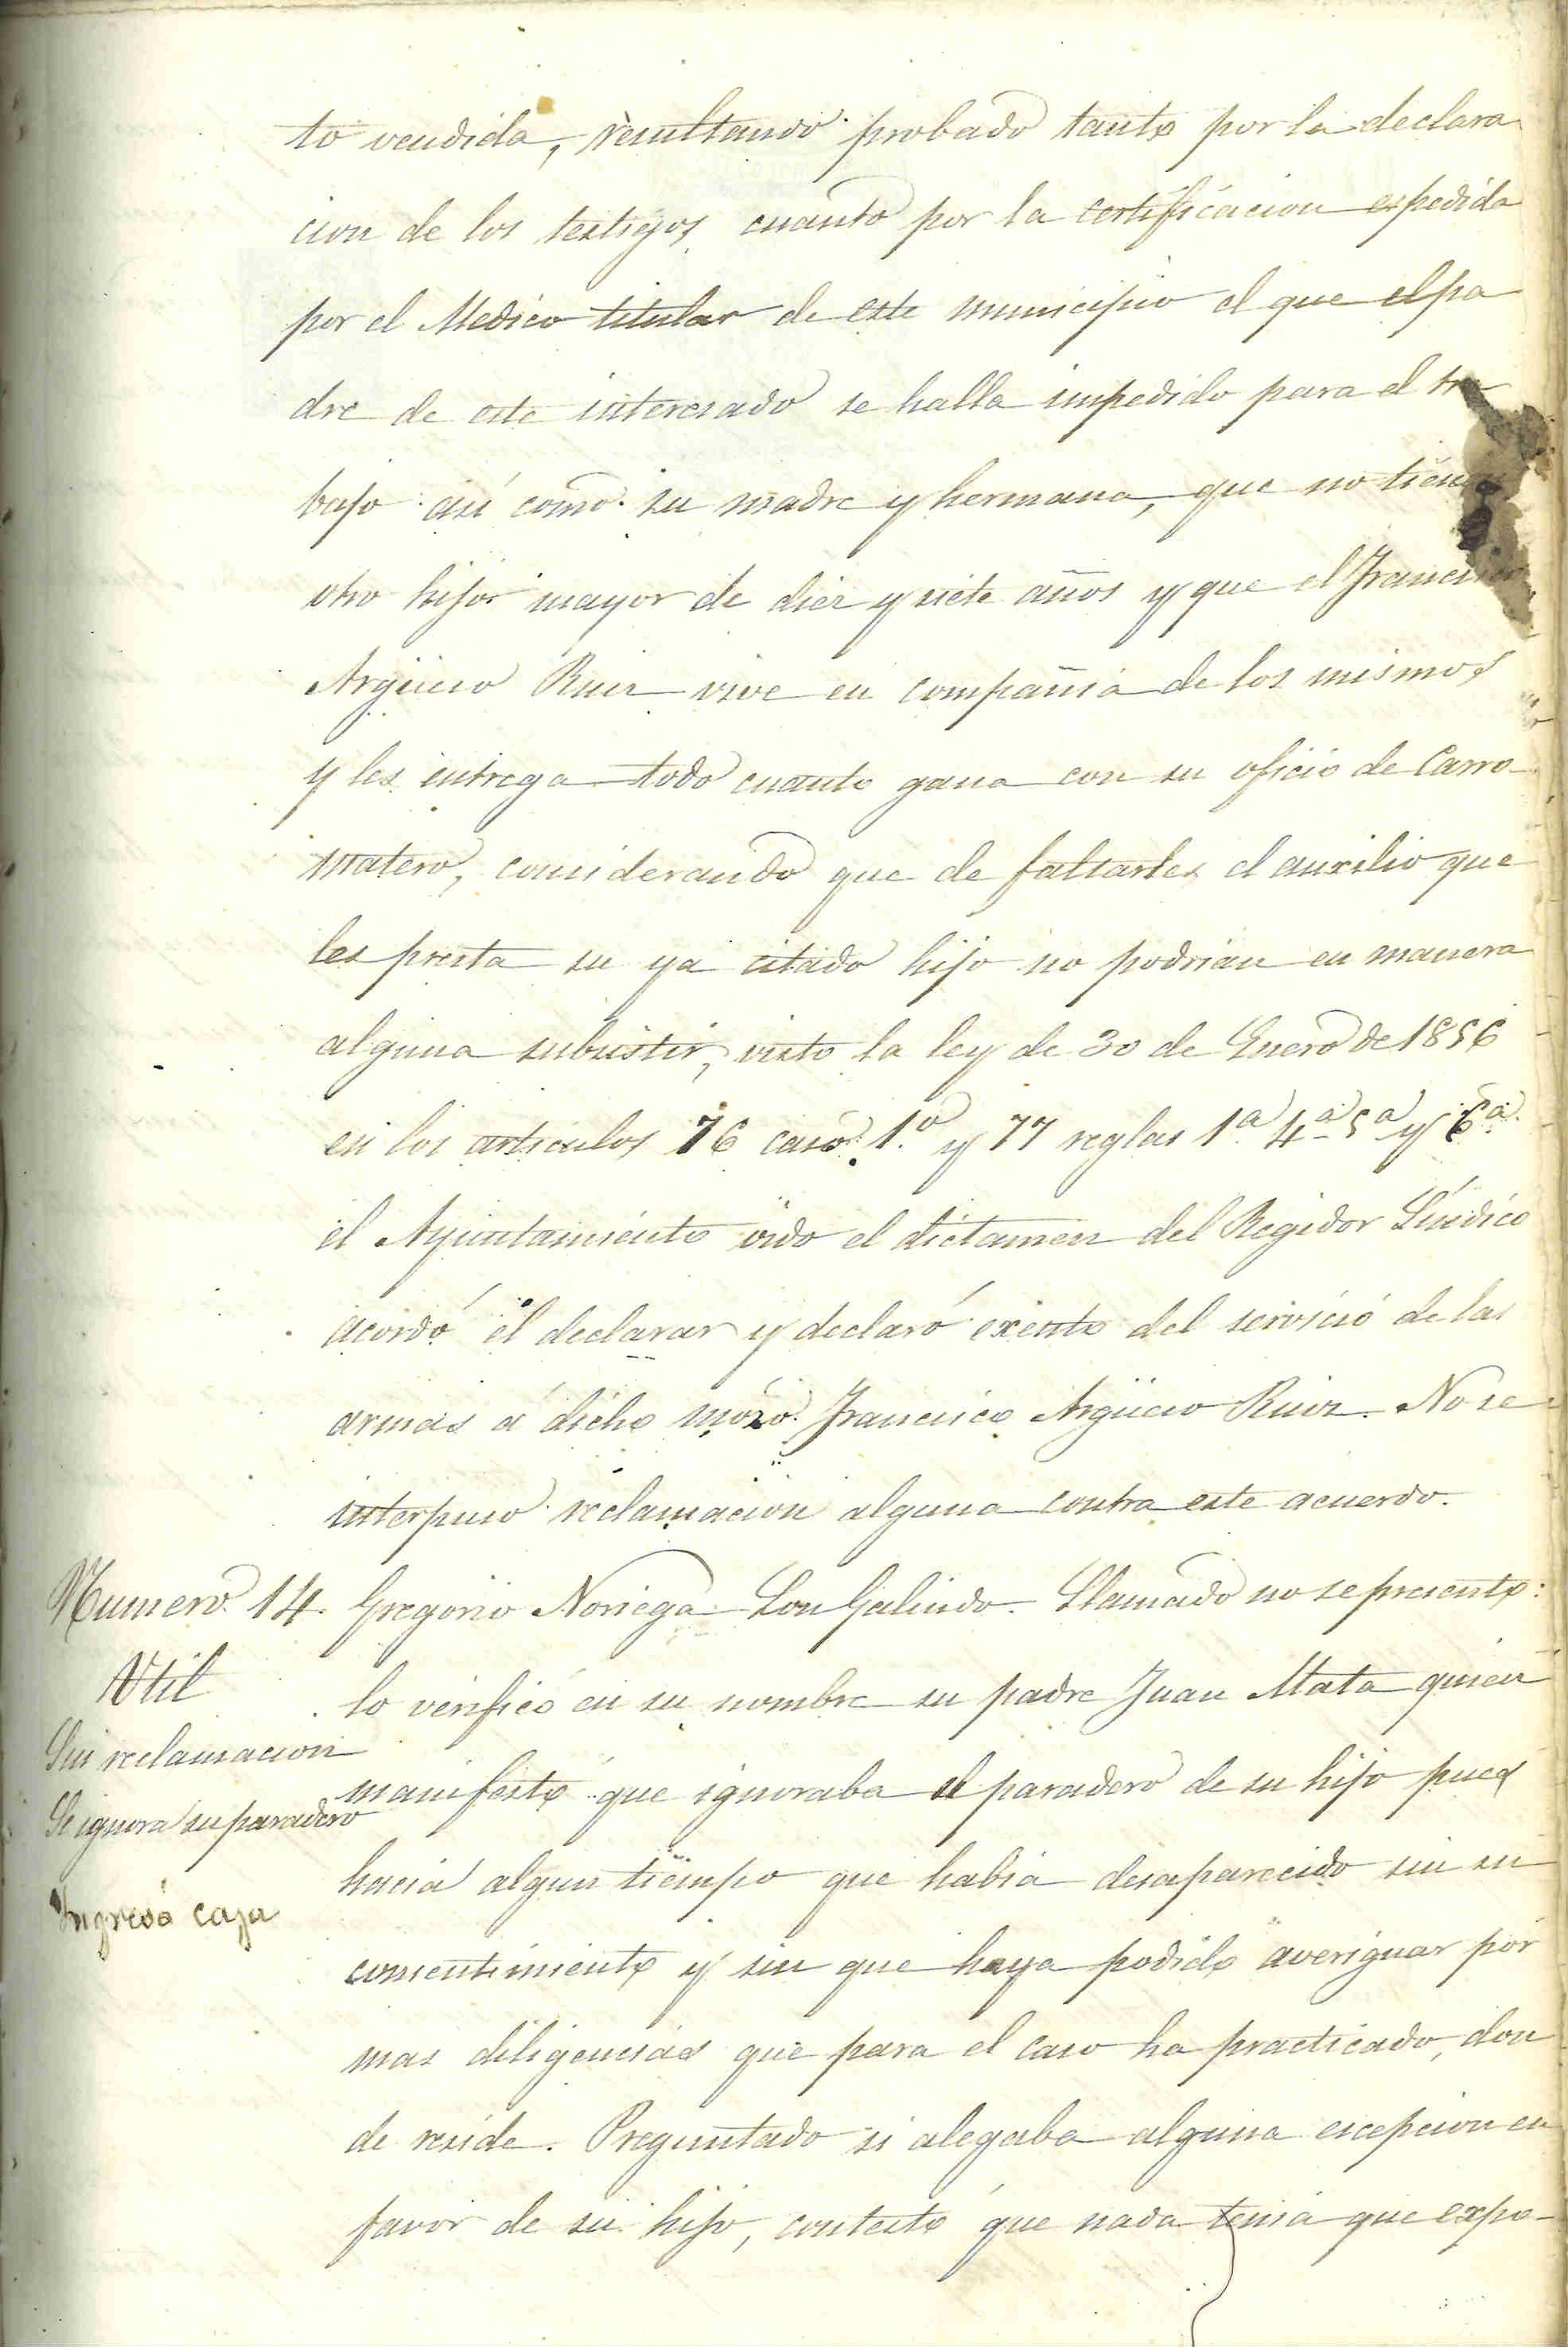 to vendida, resultando probado tanto por la declara
cion de los testigos cuanto por la certificacion espedida
por el Medico titular de este municipio el que el pa
dre de este interesado se halla impedido para el tra
bajo asi como su madre y hermana, que no tienen
otro hijo mayor de diez y siete años y que el Francisco
Argüeso Ruiz vive en compañia de los mismos
y les entrega todo cuanto gana con su oficio de Carro
matero, considerando que de faltarles el auxilio que
les presta su ya citado hijo no podrian en manera
alguna subsistir, visto la ley de 30 de Enero de 1856
en los articulos 76 caso 1.º y 77 reglas 1ª 4ª 5ª y 6ª
el Ayuntamiento oido el dictamen del Regidor Sindico
acordó el declarar y declaró exento del servicio de las
armas á dicho mozo Francisco Argüeso Ruiz. No se
interpuso reclamacion alguna contra este acuerdo.
Numero 14. Gregorio Noriega Galindo. Llamado no se presento:
Util lo verificó en su nombre su padre Juan Mata quien
Sin reclamacion
manifestó que ignoraba el paradero de su hijo pues
Se ignora su paradero
hacia algun tiempo que habia desaparecido sin su
Ingresó caja
consentimiento y sin que haya podido averiguar por
mas diligencias que para el caso ha practicado, don
de reside. Preguntado si alegaba alguna escepcion en
favor de su hijo, contestó que nada tenia que expo-